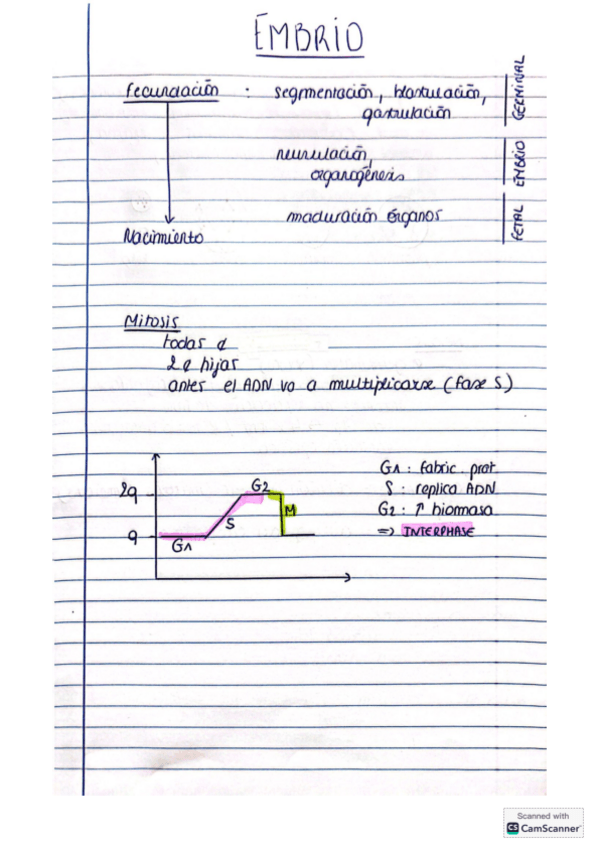 EMBRIO
fecundación : segmentación, blastulación,
gastrulación
GERMINAL
neurulación,
organogénesis
EMBRIO
maduración órganos
FETAL
Nacimiento
Mitosis
todas ¢
2 ¢ hijas
antes el ADN va a multiplicarse (fase S)
2q
q
G1
S
G2
M
G1 : fabric. prot.
S : replica ADN
G2 : ↑ biomasa
=> INTERPHASE
Scanned with
CS CamScanner